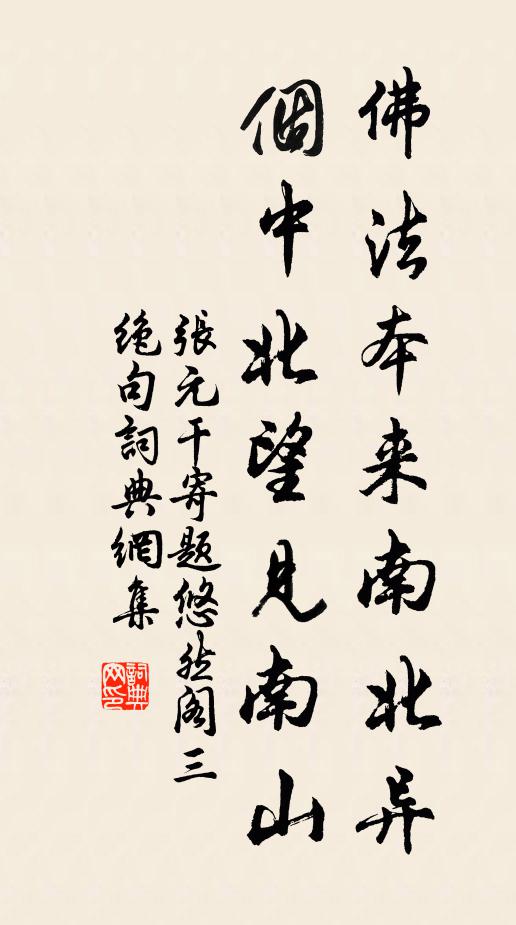 佛法本来南北异
個中北望見南山
張元干寄题悠然阁三
绝句詞典網集
詞典
网印